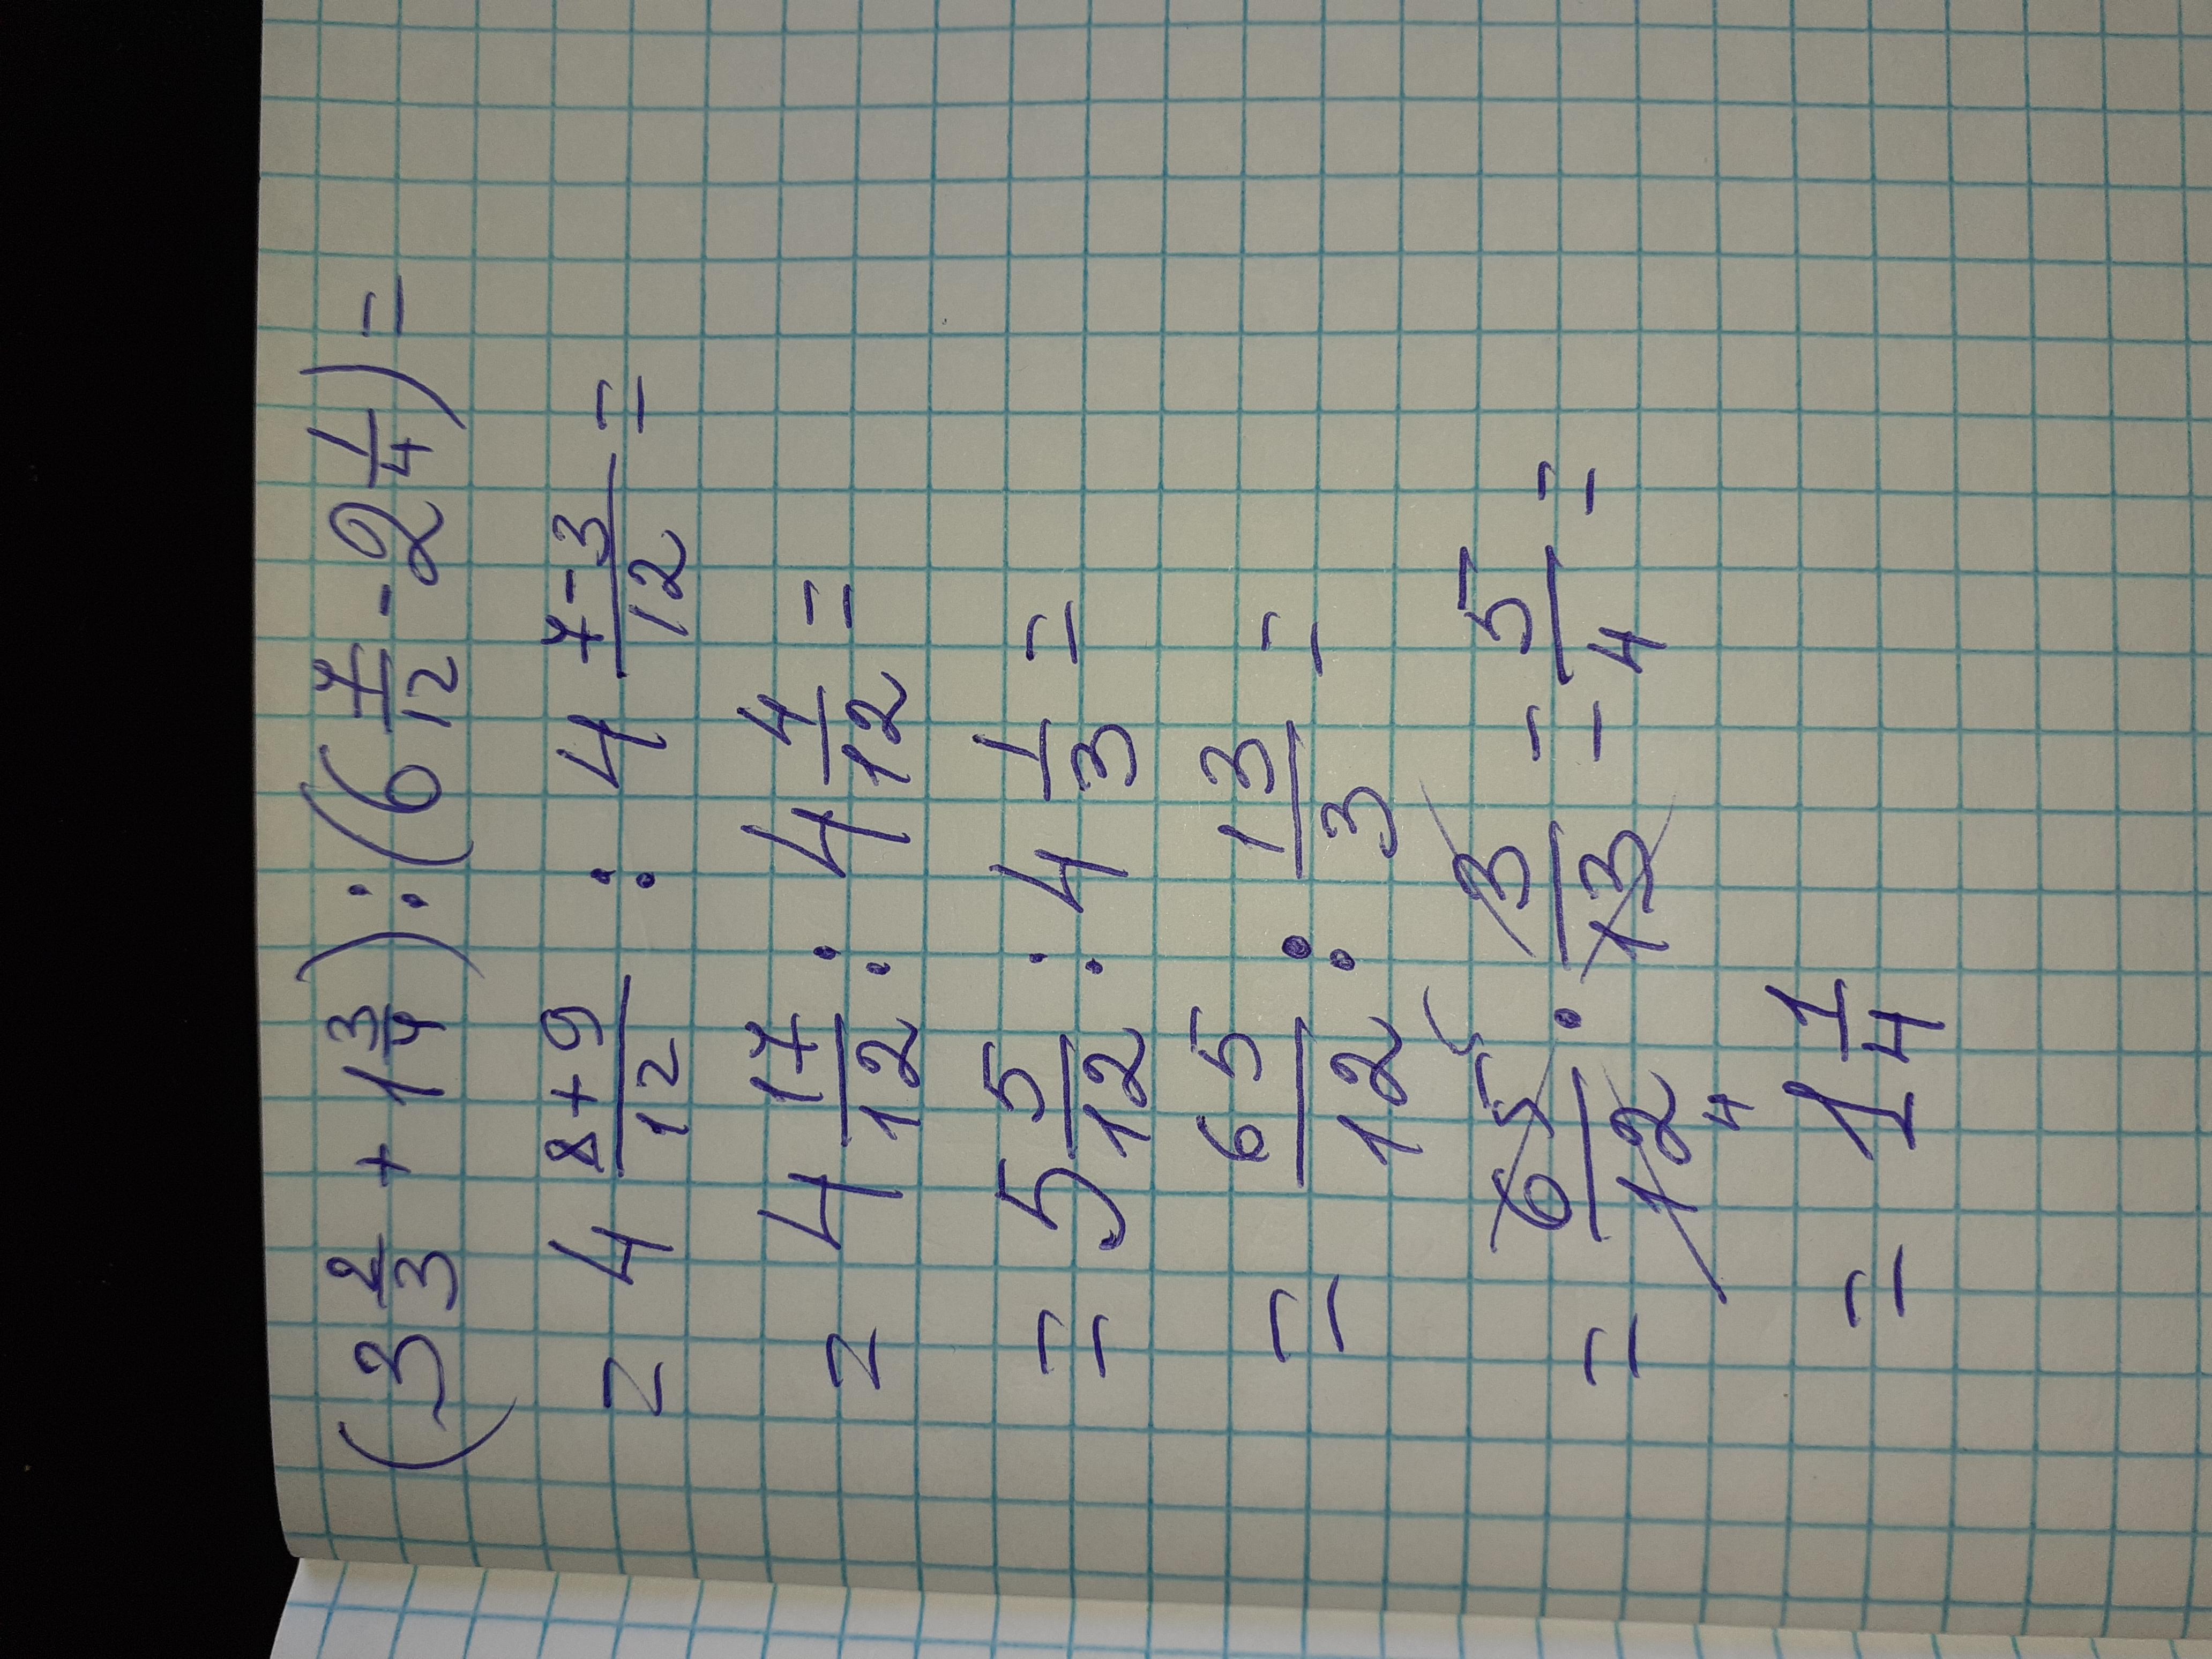 (3 2/3 + 1 3/4) : (6 7/12 - 2 1/4) =
= 4 8+9/12 : 4 7-3/12 =
= 4 17/12 : 4 4/12 =
= 5 5/12 : 4 1/3 =
= 65/12 : 13/3 =
= 65 5/12 4 · 3/13 = 5/4 =
= 1 1/4